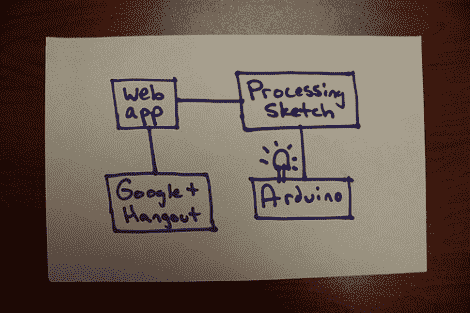 Web
app
Processing
Sketch
Google+
Hangout
Arduino